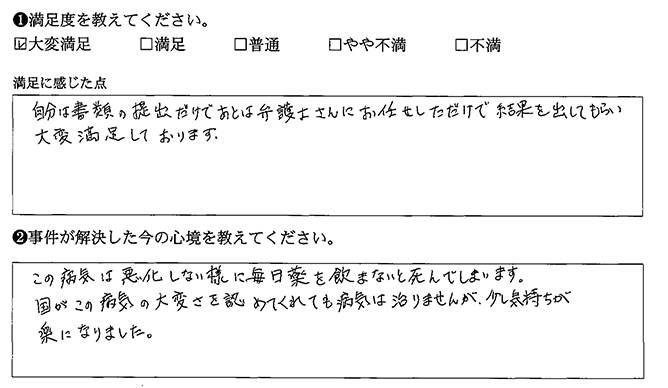 ❶満足度を教えてください。
☑大変満足 □満足 □普通 □やや不満 □不満
満足に感じた点
自分は書類の提出だけであとは弁護士さんにお任せしただけで結果を出してもらい
大変満足しております。
❷事件が解決した今の心境を教えてください。
この病気は悪化しない様に毎日薬を飲まないと死んでしまいます。
国がこの病気の大変さを認めてくれても病気は治りませんが、少し気持ちが
楽になりました。